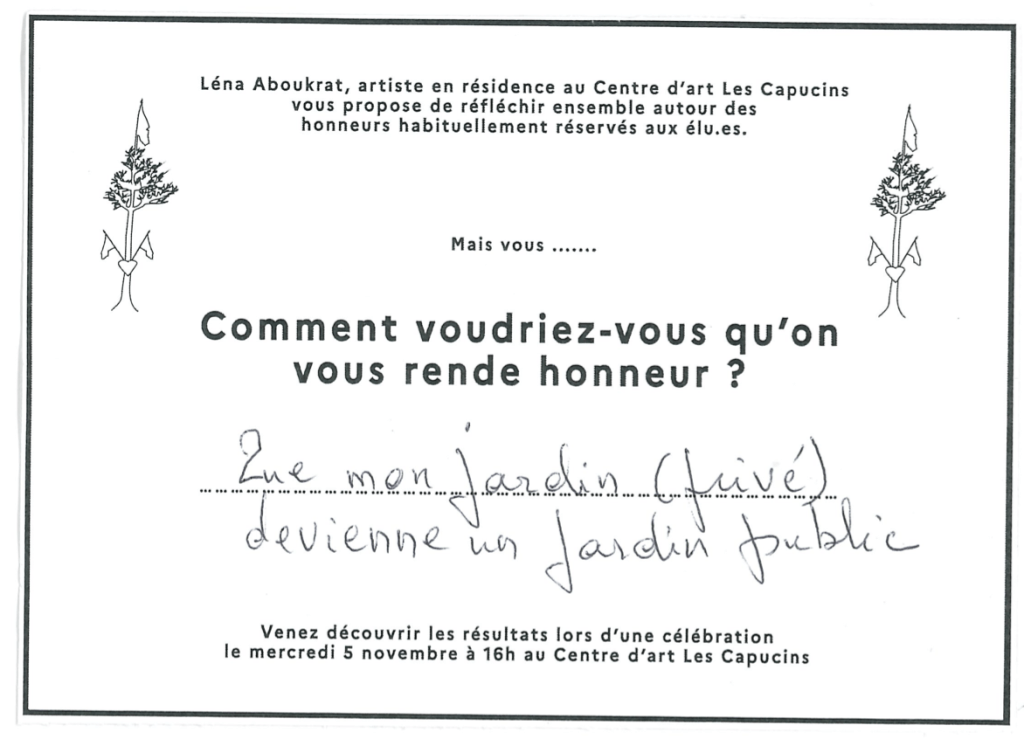 Léna Aboukrat, artiste en résidence au Centre d'art Les Capucins
vous propose de réfléchir ensemble autour des
honneurs habituellement réservés aux élu.es.
Mais vous .......
Comment voudriez-vous qu'on
vous rende honneur ?
Que mon jardin (privé)
devienne un jardin public
Venez découvrir les résultats lors d'une célébration
le mercredi 5 novembre à 16h au Centre d'art Les Capucins